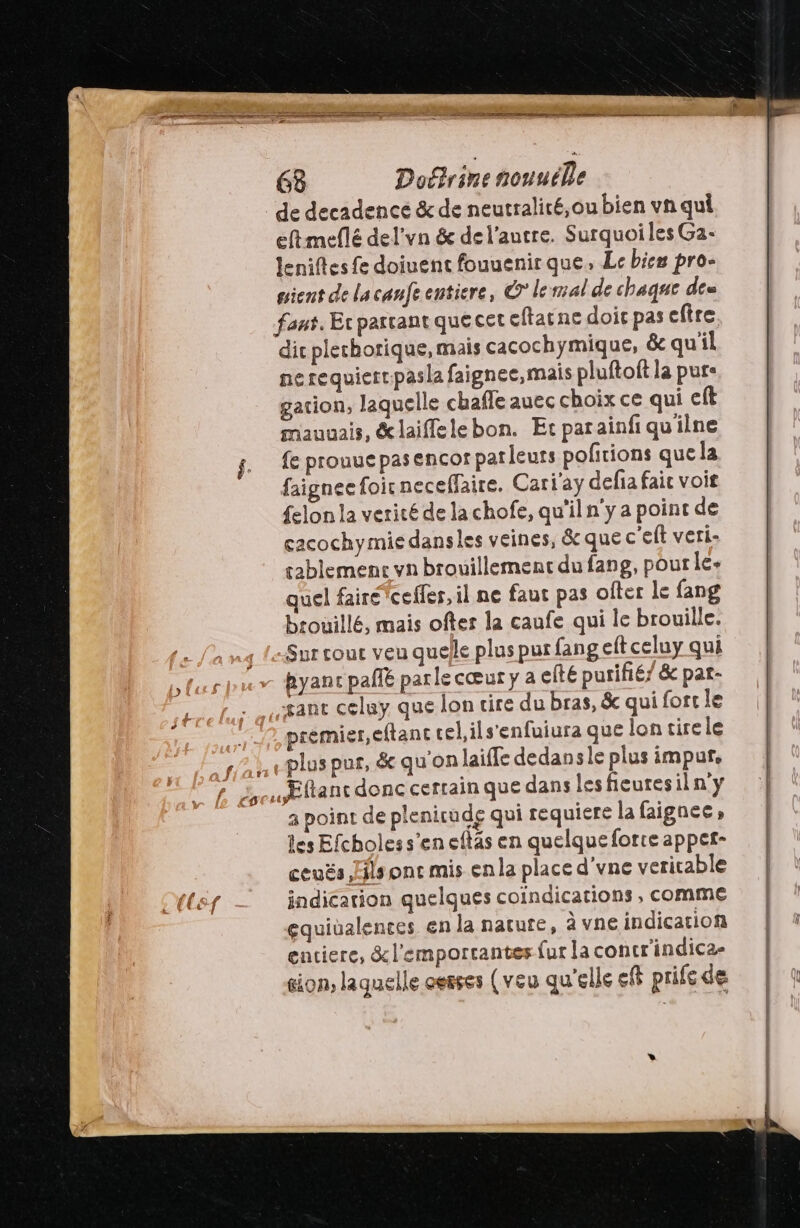 68 Doctrine nouuelle
de decadence & de neutralité, ou bien vn qui
est meslé de l'vn & de l'autre. Surquoi les Ga-
lenistes se doiuent souuenir que, Le bien pro-
uient de la cause entiere, & le mal de chaque de-
faut. Et partant que cet estat ne doit pas estre
dit plethorique, mais cacochymique, & qu'il
ne requiert pas la saignee, mais plustost la pur-
gation, laquelle chasse auec choix ce qui est
mauuais, & laisse le bon. Et par ainsi qu'il ne
se prouue pas encor par leurs positions que la
saignee soit necessaire. Car i'ay desia fait voir
selon la verité de la chose, qu'il n'y a point de
cacochymie dans les veines, & que c'est veri-
tablement vn brouillement du sang, pour le-
quel faire cesser, il ne faut pas oster le sang
brouillé, mais oster la cause qui le brouille.
Sur tout veu que le plus pur sang est celuy qui
ayant passé par le cœur y a esté purifié, & par-
tant celuy que lon tire du bras, & qui sort le
premier, estant tel, il s'ensuiura que lon tire le
plus pur, & qu'on laisse dedans le plus impur.
Estant donc certain que dans les fieures il n'y
a point de plenitude qui requiere la saignee,
les Escholes s'en estãs en quelque sorte apper-
ceuës, ils ont mis en la place d'vne veritable
indication quelques coindications, comme
equiualentes en la nature, à vne indication
entiere, & l'emportantes sur la contr'indica-
tion, laquelle certes (veu qu'elle est prise de
le sang
plus pur
est celuj qui
purifié
en passant
par le cœur